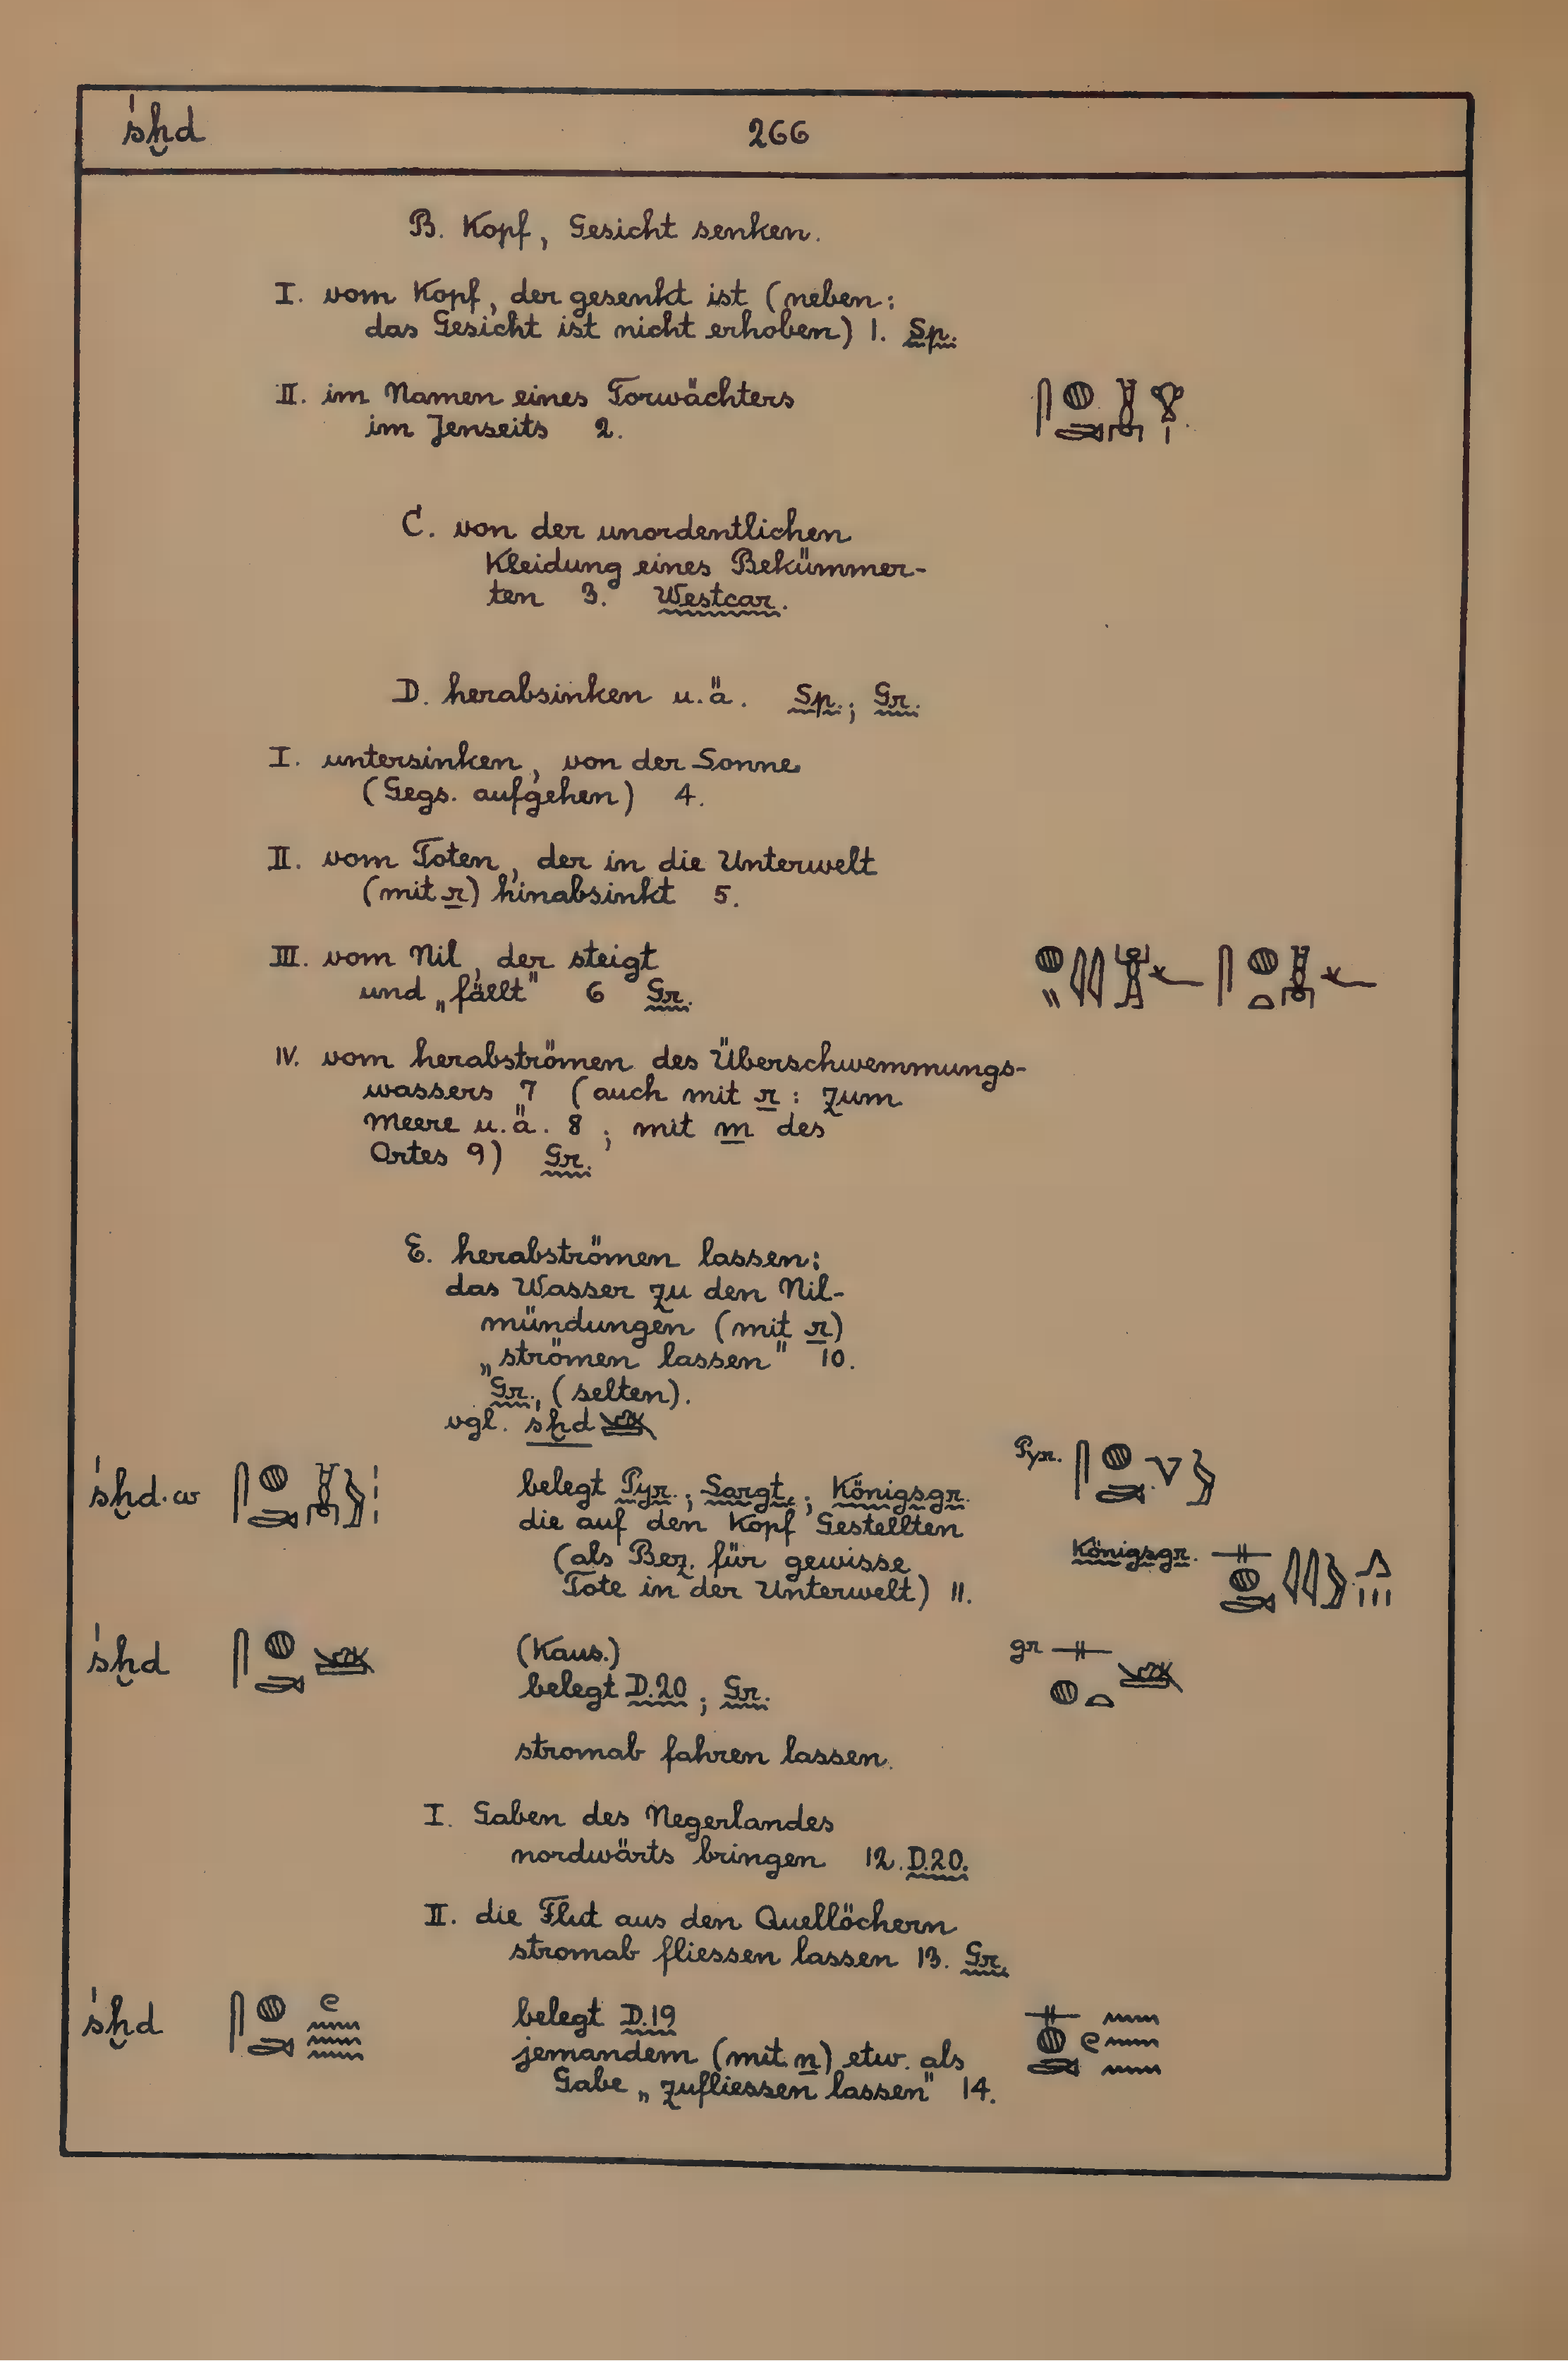 śḫd 266
B. Kopf, Gesicht senken.
I. vom Kopf, der gesenkt ist (neben:
das Gesicht ist nicht erhoben) 1. Sp.
II. im Namen eines Torwächters
im Jenseits 2.
C. von der unordentlichen
Kleidung eines Bekümmer-
ten 3. Westcar.
D. herabsinken u.ä. Sp.; Gr.
I. untersinken, von der Sonne
(Gegs. aufgehen) 4.
II. vom Toten, der in die Unterwelt
(mit r) hinabsinkt 5.
III. vom Nil, der steigt
und „fällt" 6 Gr.
IV. vom herabströmen des Überschwemmungs-
wassers 7 (auch mit r: zum
Meere u.ä. 8; mit m des
Ortes 9) Gr.
E. herabströmen lassen:
das Wasser zu den Nil-
mündungen (mit r)
„strömen lassen" 10.
Gr., (selten).
vgl. sḫd
śḫd.w belegt Pyr.; Sargt.; Königsgr. Pyr.
die auf den Kopf Gestellten
(als Bez. für gewisse Königsgr.
Tote in der Unterwelt) 11.
śḫd (Kaus.) gr
belegt D.20; Gr.
stromab fahren lassen.
I. Gaben des Negerlandes
nordwärts bringen 12. D.20.
II. die Flut aus den Quellöchern
stromab fliessen lassen 13. Gr.
śḫd belegt D.19
jemandem (mit n) etw. als
Gabe „zufliessen lassen" 14.